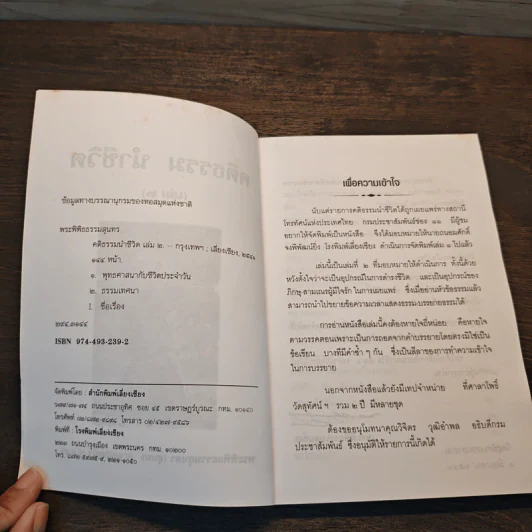 ข้อมูลทางบรรณานุกรมของหอสมุดแห่งชาติ
พระพิพิธธรรมสุนทร
คติธรรมนำชีวิต เล่ม ๒. -- กรุงเทพฯ : เลี่ยงเชียง,
๑๔๔ หน้า.
๑. พุทธศาสนากับชีวิตประจำวัน
๒. ธรรมเทศนา
I. ชื่อเรื่อง
ISBN 974-493-239-2
จัดพิมพ์โดย : สำนักพิมพ์เลี่ยงเชียง
ถนนประชาอุทิศ ซอย ๔๕ เขตราษฎร์บูรณะ กทม. ๑๐๑๔๐
โทรศัพท์ โทรสาร
พิมพ์ที่ : โรงพิมพ์เลี่ยงเชียง
ถนนบำรุงเมือง เขตพระนคร กทม. ๑๐๒๐๐
โทร.
เพื่อความเข้าใจ
นับแต่รายการคติธรรมนำชีวิตได้ถูกเผยแพร่ทางสถานี
โทรทัศน์แห่งประเทศไทย กรมประชาสัมพันธ์ช่อง ๑๑ มีผู้ชม
อยากให้จัดพิมพ์เป็นหนังสือ จึงได้มอบหมายให้นายถนอมศักดิ์
จงพิพัฒน์ยิ่ง โรงพิมพ์เลี่ยงเชียง ดำเนินการจัดพิมพ์เล่ม ๑ ไปแล้ว
เล่มนี้เป็นเล่มที่ ๒ ที่มอบหมายให้ดำเนินการ ทั้งนี้ด้วย
หวังตั้งใจว่าจะเป็นอุปกรณ์ในการดำรงชีวิต และเป็นอุปกรณ์ของ
ภิกษุ-สามเณรผู้มีใจรัก ในการเผยแพร่ ซึ่งเมื่ออ่านหัวข้อธรรมแล้ว
สามารถนำไปขยายข้อความเวลาแสดงธรรม-บรรยายธรรมได้
การอ่านหนังสือเล่มนี้คงต้องหายใจถี่หน่อย คือหายใจ
ตามวรรคตอนเพราะเป็นการถอดจากคำบรรยายโดยตรงมิใช่เป็น
ข้อเขียน บางทีมีคำซ้ำ ๆ กัน ซึ่งเป็นลีลาของการทำความเข้าใจ
ในการบรรยาย
นอกจากหนังสือแล้วยังมีเทปจำหน่าย ที่ศาลาโพธิ์
วัดสุทัศน์ฯ รวม ๒ ปี มีหลายชุด
ต้องขออนุโมทนาคุณวิจิตร วุฒิอำพล อธิบดีกรม
ประชาสัมพันธ์ ซึ่งอนุมัติให้รายการนี้เกิดได้